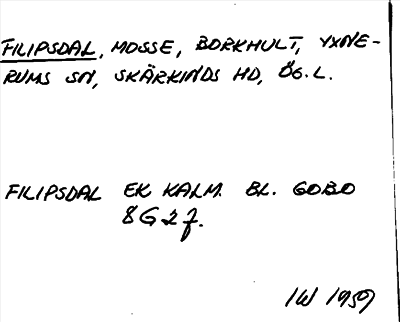 FILIPSDAL, MOSSE, BORKHULT, YXNE-
RUMS SN, SKÄRKINDS HD, ÖG.L.
FILIPSDAL EK KALM. BL. GOBO
8G2f.
IW 1959